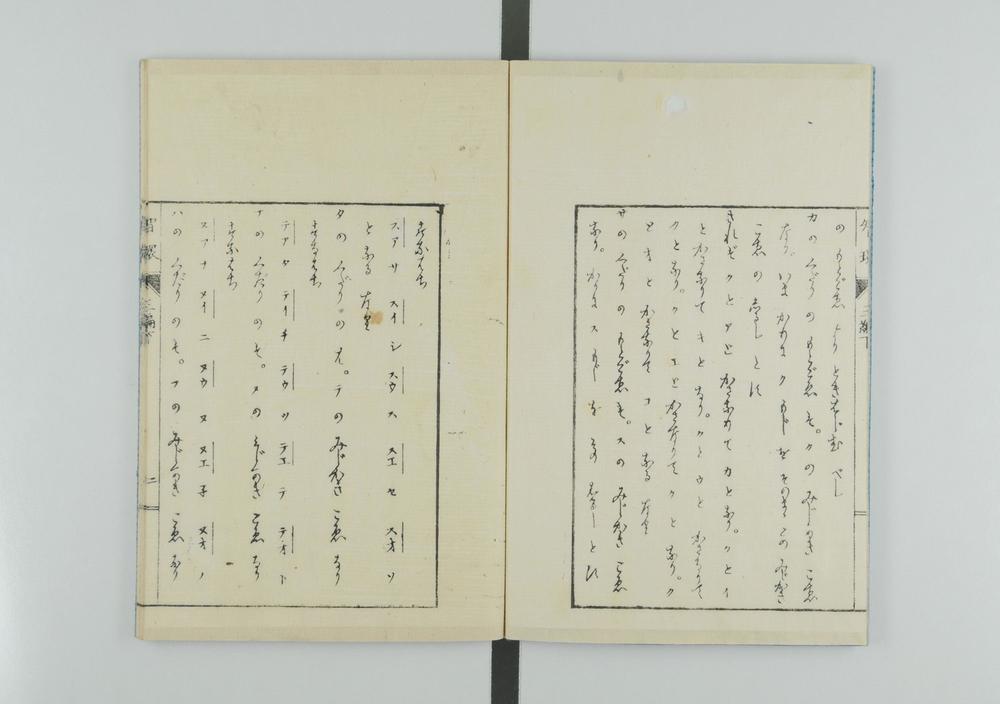 の もとごゑ より ときはじむ べし
カの くだり の もとごゑ も。クの みじかき こゑ
なり。いま かりに ク もじ を そのまゝ この みじかき
こゑ の しるし とす
されば クと アと かさなりて カとなり。クと イ
と かさなりて キと なり。クと ウと かさなりて
クと なり。クと エと かさなりて ケと なり。ク
と オと かさなりて コと なる なり
サの くだり の もとごゑ も。スの みじかき こゑ
なり。かりに ス もじ を その しるし とす
すなはち
スア サ スイ シ スウ ス スエ セ スオ ソ
と なる なり
タの くだり の も。テの みじかき こゑ なり
すなはち
テア タ テイ チ テウ ツ テエ テ テオ ト
ナの くだり の も。ヌの みじかき こゑ なり
すなはち
ヌア ナ ヌイ ニ ヌウ ヌ ヌエ 子 ヌオ ノ
ハの くだり の も。フの みじかき こゑ なり
二